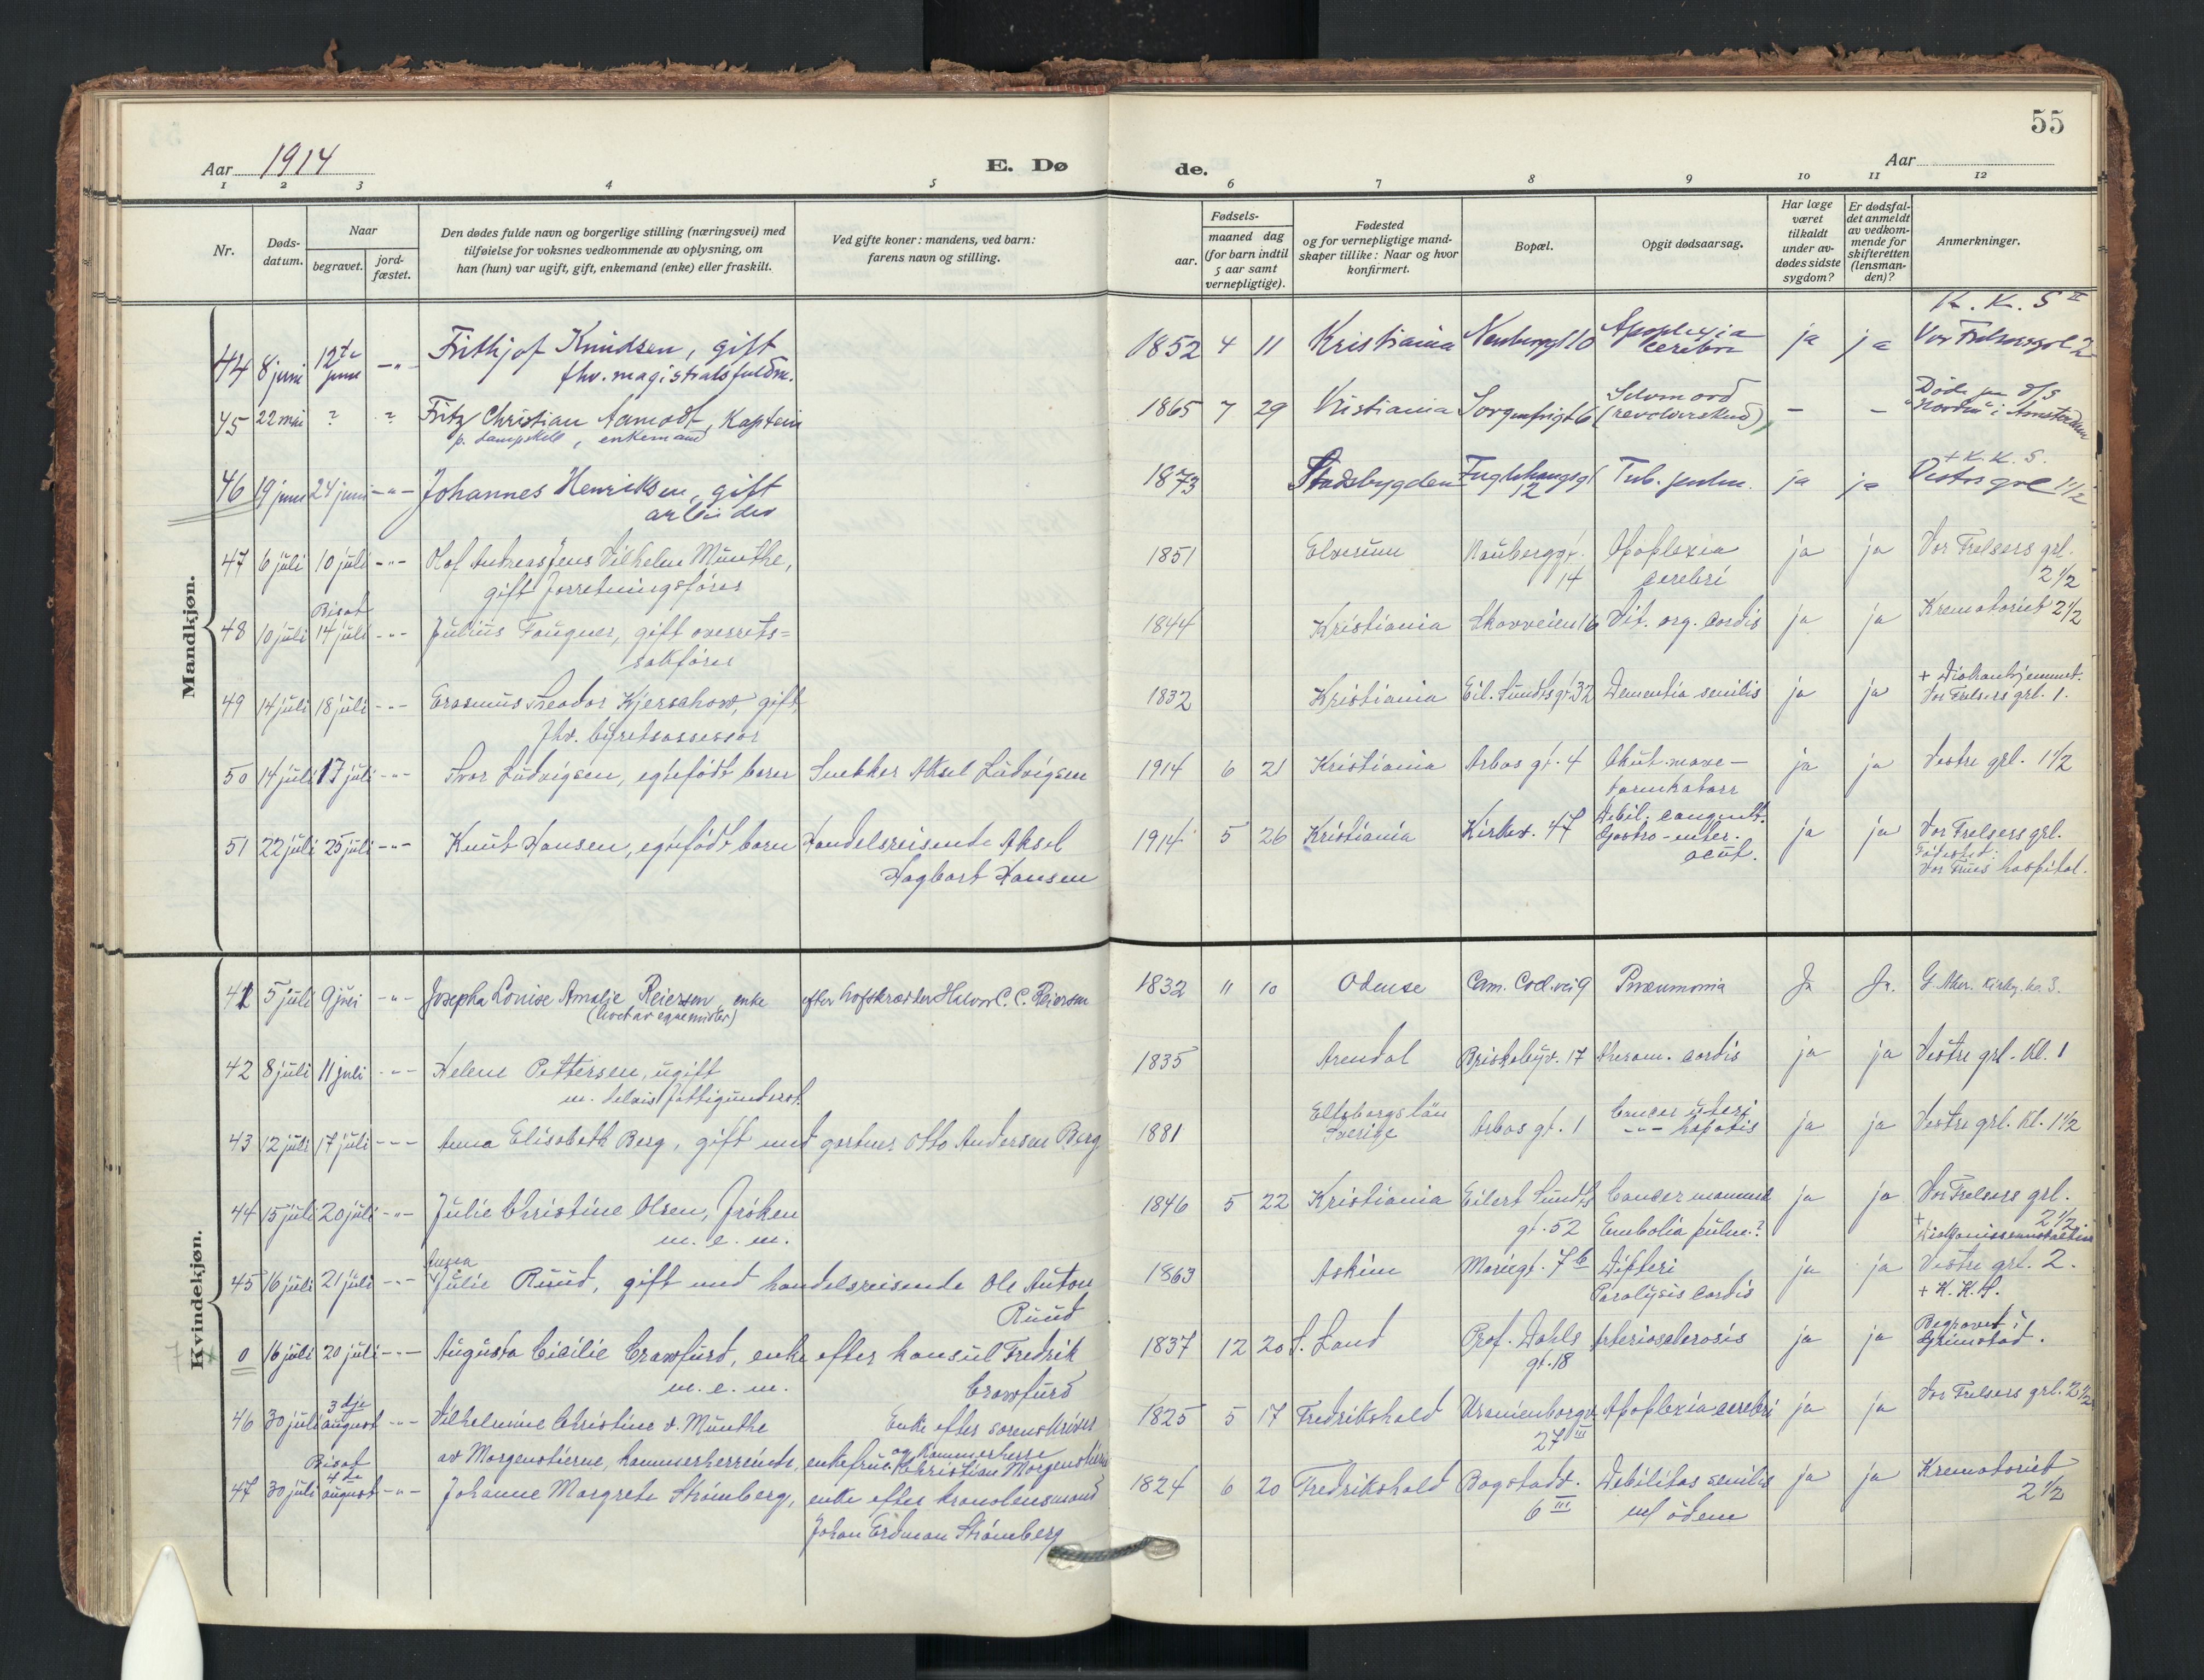 55
Aar 1914
E. Dø
de.
Aar
1 2 3 4 5 6 7 8 9 10 11 12
Nr.
Døds-
datum.
Naar
begravet.
jord-
fæstet.
Den dødes fulde navn og borgerlige stilling (næringsvei) med
tilføielse for voksnes vedkommende av oplysning, om
han (hun) var ugift, gift, enkemand (enke) eller fraskilt.
Ved gifte koner: mandens, ved barn:
farens navn og stilling.
Fødsels-
aar.
maaned dag
(for barn indtil
5 aar samt
vernepligtige).
Fødested
og for vernepligtige mand-
skaper tillike: Naar og hvor
konfirmert.
Bopæl.
Opgit dødsaarsag.
Har læge
været
tilkaldt
under av-
dødes sidste
sygdom?
Er dødsfal-
det anmeldt
av vedkom-
mende for
skifteretten
(lensman-
den)?
Anmerkninger.
Mandkjøn.
K. K. S II
44 8 juni 12te juni -"- Frithjof Knudsen, gift 1852 4 11 Kristiania Neuberggt 10 Apoplexia ja ja Vor Frelsersgrl 2
fhv. magistratsfuldm. cerebri
45 22 mai ? ? Fritz Christian Aamodt, Kaptein 1865 7 29 Kristiania Sorgenfrigt 6 Selvmord (revolverskud) - - Døde paa d/s
p. Dampskib, enkemand "Norden" i Amsterdam
46 19 juni 24 juni -"- Johannes Henriksen, gift 1873 Stadsbygden Fuglehaugsgt 12 Tub. pulm. ja ja + K. K. S.
arbeider Vestre grl 1 1/2
47 6 juli 10 juli -"- Olaf Andreas Jens Vilhelm Munthe, 1851 Elverum Neuberggt. 14 Apoplexia ja ja Vor Frelsers grl.
gift forretningsfører cerebri 2 1/2
48 10 juli Bisat 14 juli -"- Julius Fougner, gift overrets= 1844 Kristiania Skovveien 16 Vit. org. cordis ja ja Krematoriet 2 1/2
sakfører
49 14 juli 18 juli -"- Erasmus Teodor Kjerschow, gift, 1832 Kristiania Eil. Sundts gt. 32 Dementia senilis ja ja + Diakonhjemmet.
fhv. byretsassessor Vor Frelsers grl. 1.
50 14 juli 17 juli -"- Ivar Ludvigsen, egtefødt barn Snekker Aksel Ludvigsen 1914 6 21 Kristiania Arbos gt. 4 Akut mave- ja ja Vestre grl. 1 1/2
tarmkatarr
51 22 juli 25 juli -"- Knut Hansen, egtefødt barn Handelsreisende Aksel 1914 5 26 Kristiania Kirkev. 47 Debil. congenit. ja ja Vor Frelsers grl.
Hagbart Hansen Gastro-enter. acut. Fødested: Vor Frues hospital.
Kvindekjøn.
41 5 juli 9 juli -"- Josepha Lovise Amalie Reiersen, enke efter hofskrædder Halvor C. C. Reiersen 1832 11 10 Odense Cam. Coll. vei 9 Pneumonia Ja Ja. G. Aker. Kirkeg. kl. 3.
(levet av egne midler)
42 8 juli 11 juli -"- Helene Pettersen, ugift 1835 Arendal Briskebyv. 17 Atherom. cordis ja ja Vestre grl. Kl. 1
m. delvis fattigunderst.
43 12 juli 17 juli -"- Anna Elisabeth Berg, gift med gartner Otto Andersen Berg 1881 Elfsborgs län Sverige Arbos gt. 1 Cancer uteri ja ja Vestre grl. Kl. 1 1/2
-"- hepatis
44 15 juli 20 juli -"- Julie Christine Olsen, frøken 1846 5 22 Kristiania Eilert Sundts gt. 52 Cancer mammae ja ja Vor Frelsers grl. 2 1/2
m. e. m. Embolia pulm.? + Diakonisseanstalten
45 16 juli 21 juli -"- Julie Ruud, gift med handelsreisende Ole Anton 1863 Askim Mariegt. 7b Difteri ja ja Vestre grl. 2.
Ruud Paralysis cordis + K. K. S.
0 16 juli 20 juli -"- Augusta Cicilie Crawfurd, enke efter konsul Fredrik 1837 12 20 S. Land Prof. Dahls gt. 18 Arteriosclerosis ja ja Begravet i
m. e. m. Crawfurd Grimstad.
46 30 juli 3dje august -"- Vilhelmine Christine v. Munthe Enke efter sorenskriver 1825 5 17 Fredrikshald Uranienborgv. 27 III Apoplexia cerebri ja ja Vor Frelsers grl. 2 1/2
av Morgenstierne, kammerherreinde, enkefrue. og Kammerherre Christian Morgenstierne
47 30 juli Bisat 4de august -"- Johanne Margrete Strømberg, enke efter kronolensmand 1824 6 20 Fredrikshald Bogstadv. 6 III Debilitas senilis ja ja Krematoriet
Johan Erdman Strømberg m/ ödem 2 1/2